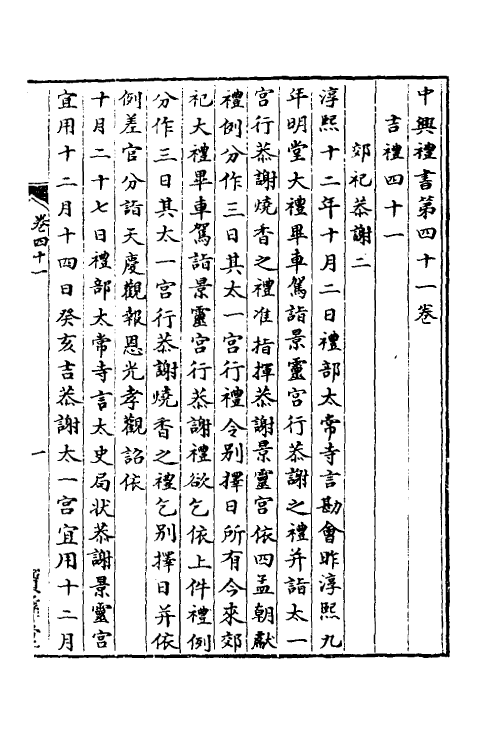 中興禮書第四十一卷
吉禮四十一
郊祀恭謝二
淳熙十二年十月二日禮部太常寺言勘會昨淳熙九
年明堂大禮畢車駕詣景靈宮行恭謝之禮并詣太一
宮行恭謝燒香之禮准指揮恭謝景靈宮依四孟朝獻
禮例分作三日其太一宮行禮令别擇日所有今來郊
祀大禮畢車駕詣景靈宮行恭謝禮欲乞依上件禮例
分作三日其太一宮行恭謝燒香之禮乞别擇日并依
例差官分詣天慶觀報恩光孝觀詔依
十月二十七日禮部太常寺言太史局状恭謝景靈宮
宜用十二月十四日癸亥吉恭謝太一宮宜用十二月
卷四十一
一